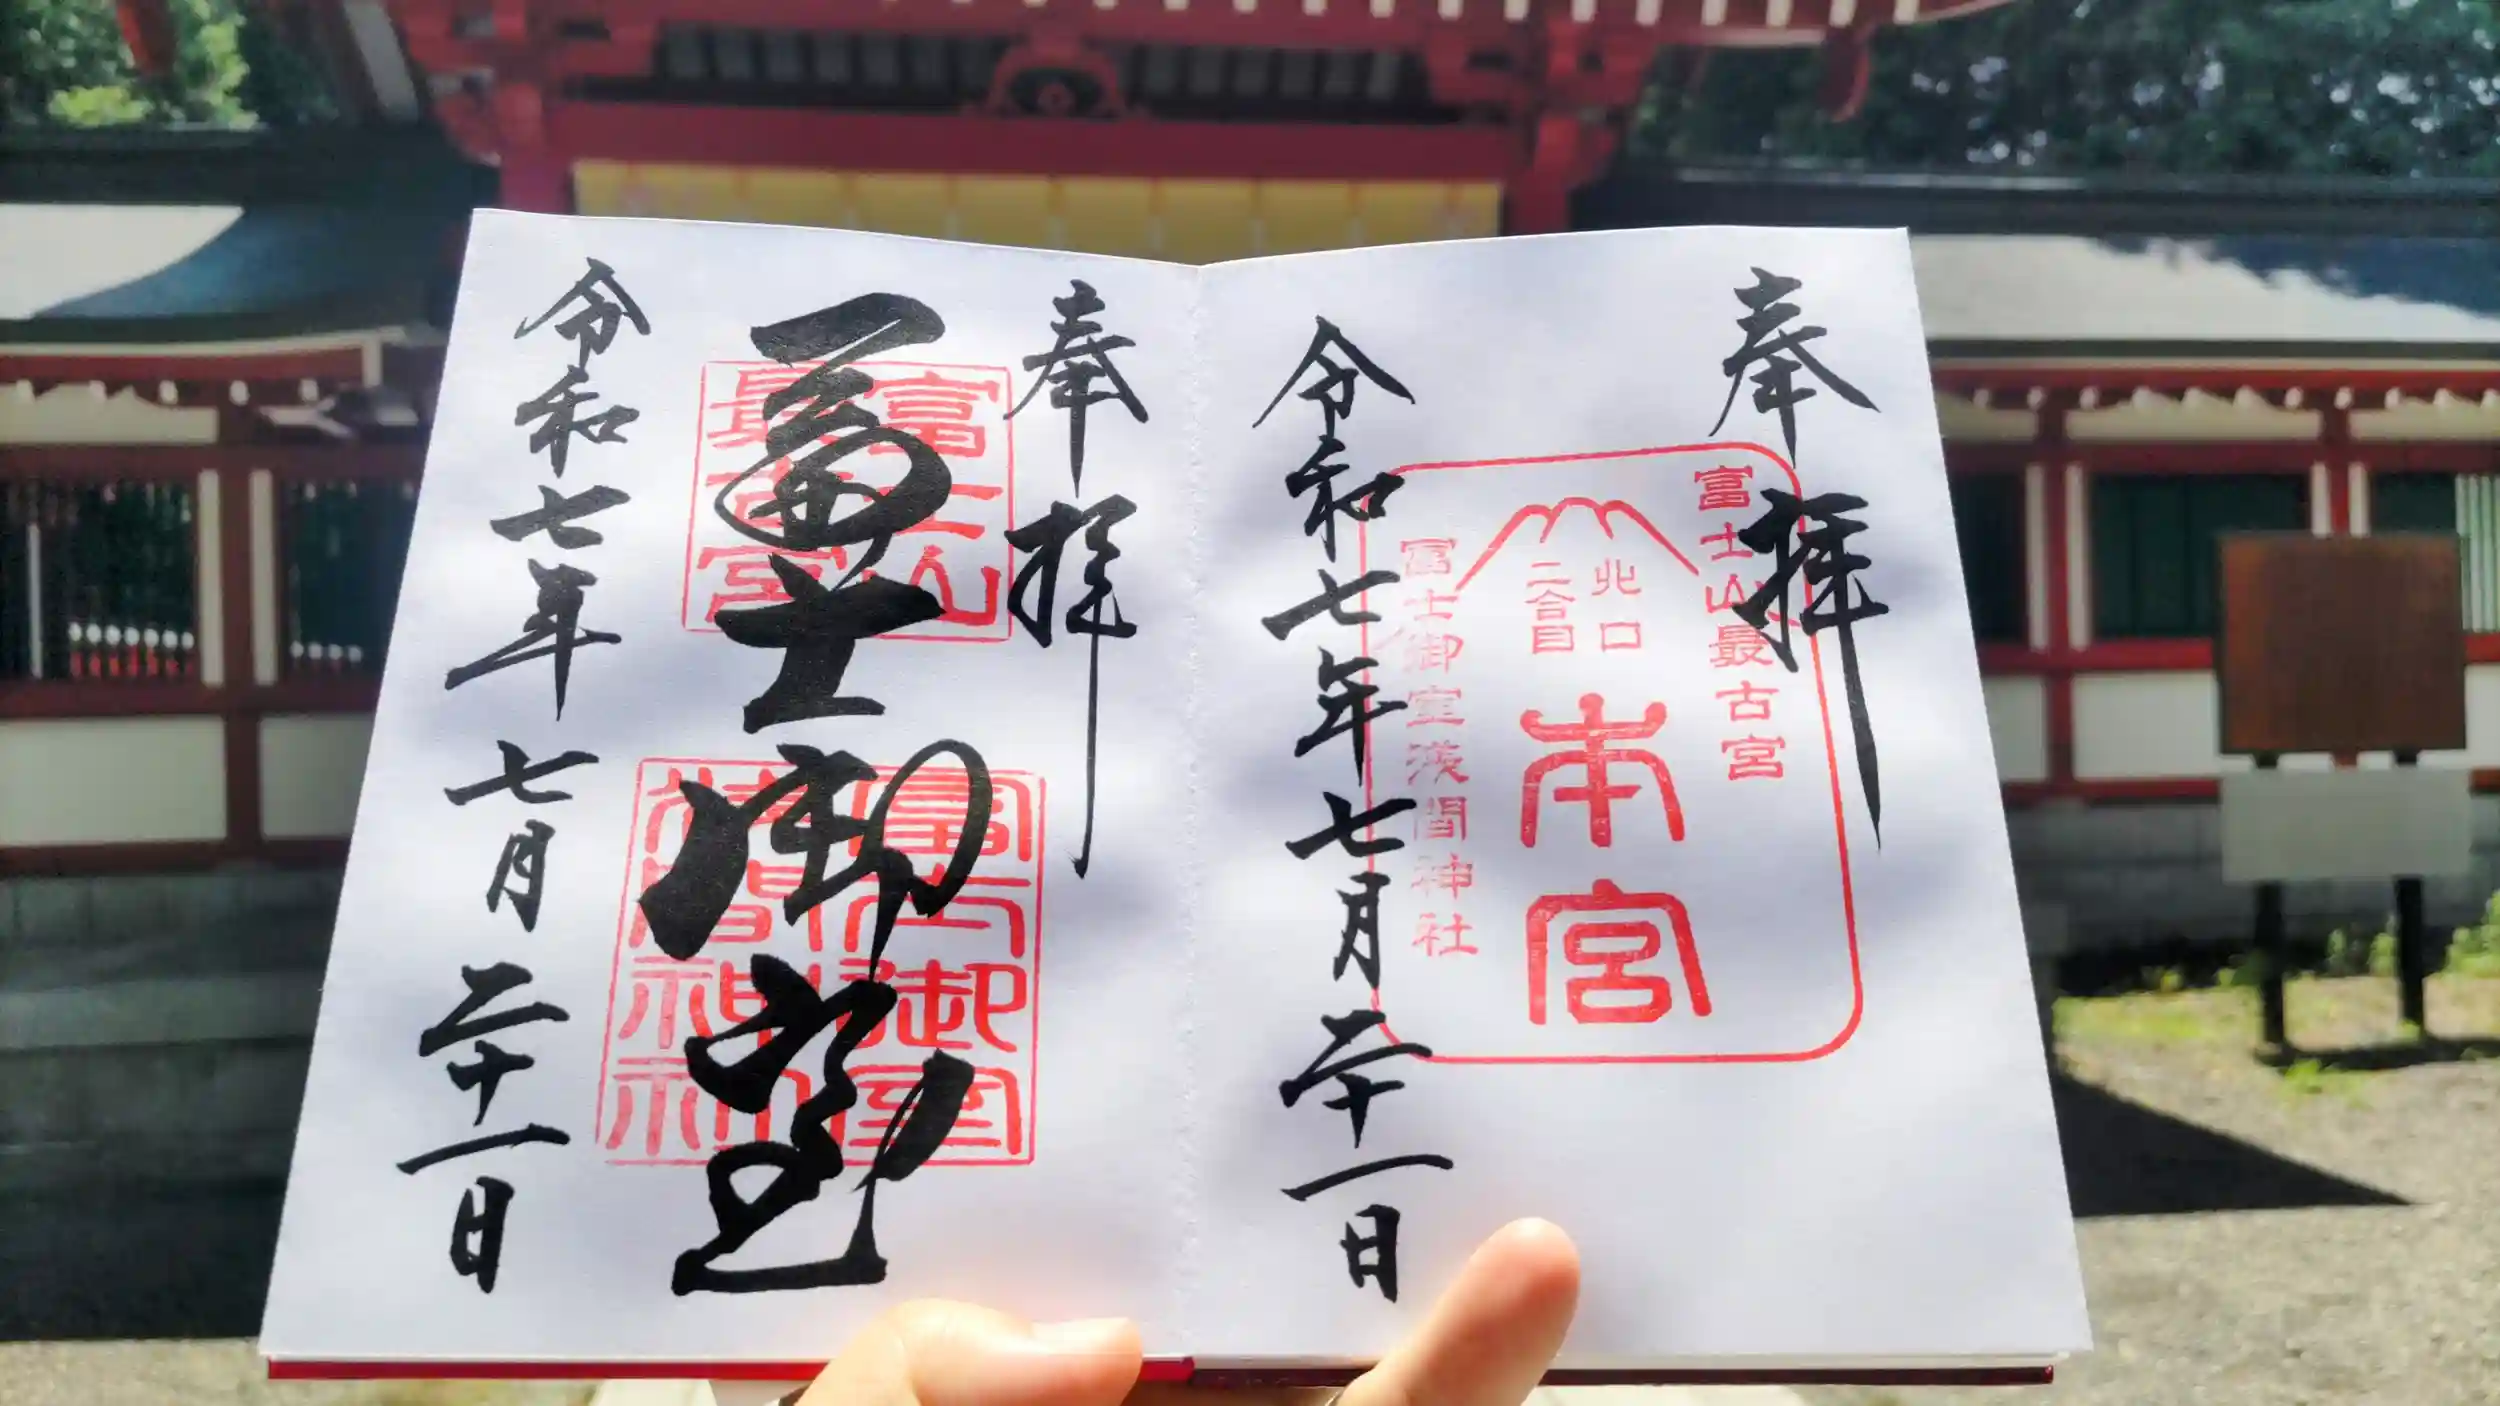 奉拝
富士山最古宮
北口
二合目
本宮
富士御室淺間神社
令和七年七月二十一日
奉拝
富士山
最古宮
富士御室
富士御室
淺間神社
令和七年七月二十一日